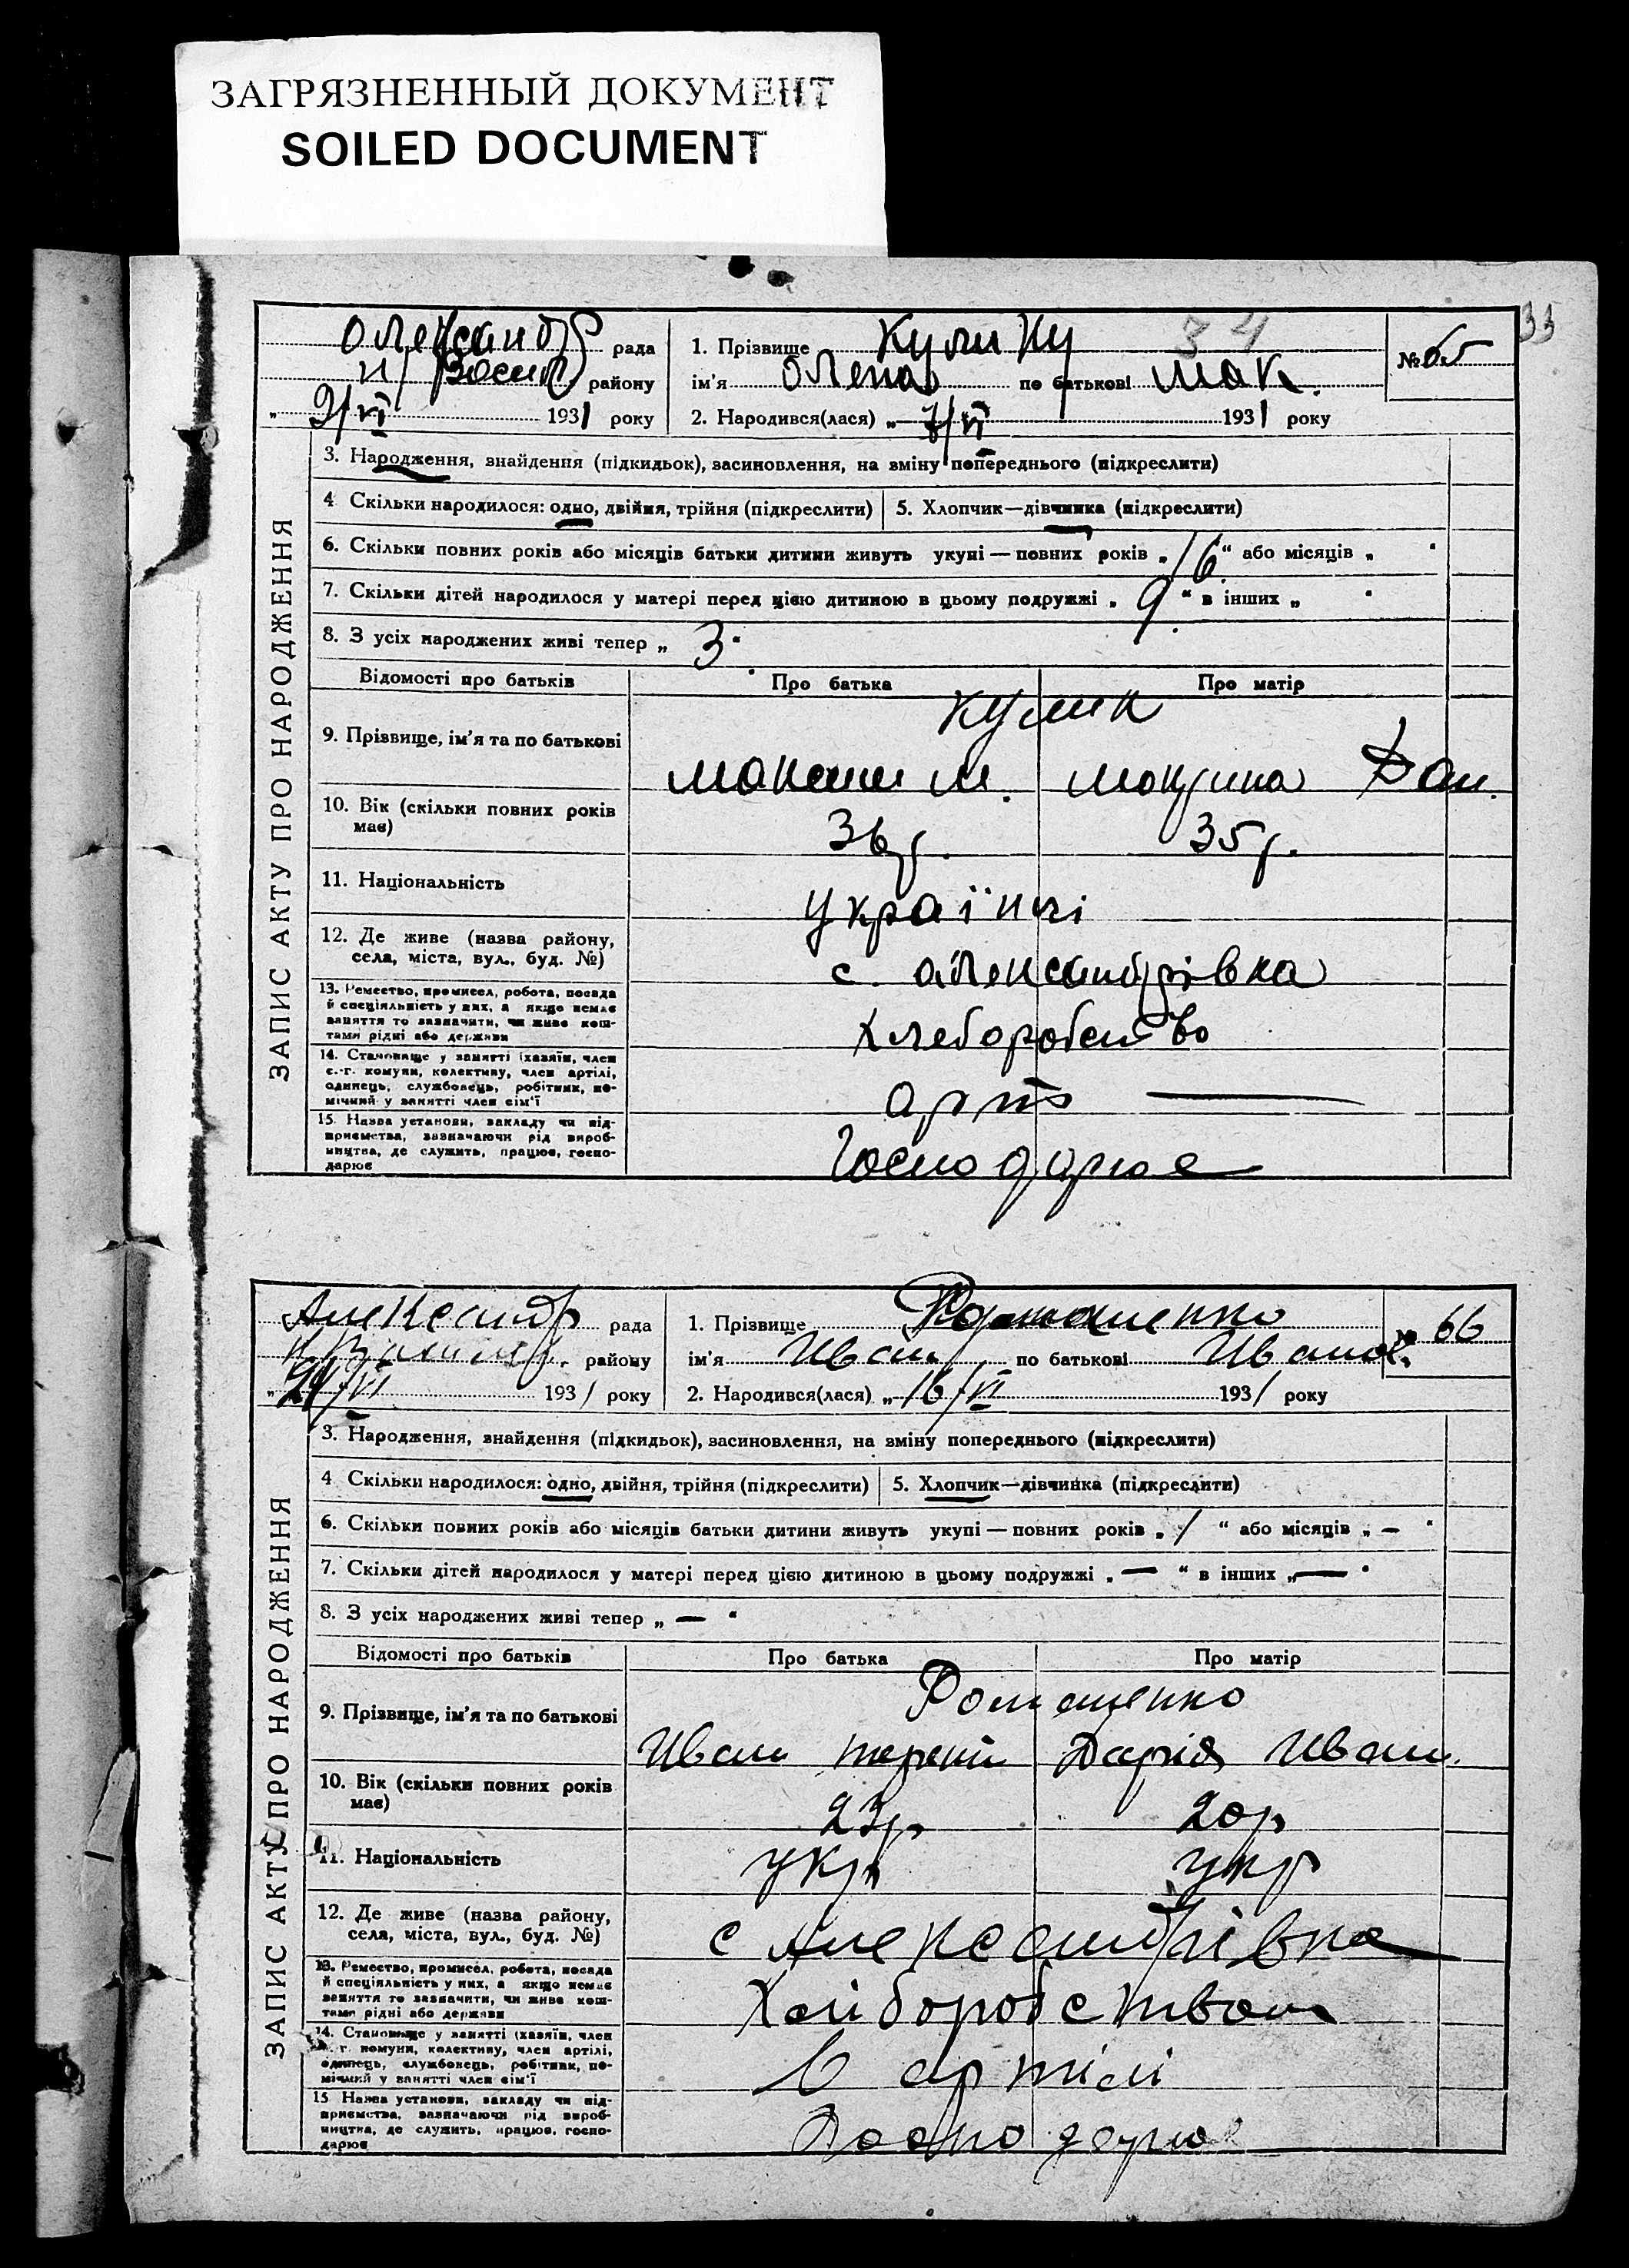 ЗАГРЯЗНЕННЫЙ ДОКУМЕНТ
SOILED DOCUMENT
35
34
ЗАПИС АКТУ ПРО НАРОДЖЕННЯ
Олександр рада
н/ району
9/VI 1931 року
1. Прізвище Кулику
ім'я Олена по батькові Мак.
№ 65
2. Народився(лася) „ 7/VI 1931 року
3. Народження, знайдення (підкидьок), засиновлення, на зміну попереднього (підкреслити)
4 Скільки народилося: одно, двійня, трійня (підкреслити) 5. Хлопчик—дівчинка (підкреслити)
6. Скільки повних років або місяців батьки дитини живуть укупі — повних років „ 16 “ або місяців „ “
7. Скільки дітей народилося у матері перед цією дитиною в цьому подружжі „ 9 “ в інших „ “
8. З усіх народжених живі тепер „ 3 “
Відомості про батьків Про батька Про матір
Кулик
9. Прізвище, ім'я та по батькові Максим М. Мокрина Дан.
10. Вік (скільки повних років має) 36 р. 35 р.
11. Національність українці
12. Де живе (назва району, села, міста, вул., буд. №) с. Олександрівка
13. Ремество, промисел, робота, посада й спеціяльність у них, а якщо немає заняття то зазначити, чи живе коштами рідні або держави
Хлеборобство
14. Становище у занятті (хазяїн, член с.-г. комуни, колективу, член артілі, одинець, службовець, робітник, помічний у занятті член сім'ї
арт —
15. Назва установи, закладу чи підприємства, зазначаючи рід виробництва, де служить, працює, господарює
Господарює
ЗАПИС АКТУ ПРО НАРОДЖЕННЯ
Александр рада
району
21/VI 1931 року
1. Прізвище Ромашенко
ім'я Иван по батькові Иванов.
№ 66
2. Народився(лася) „ 16/VI 1931 року
3. Народження, знайдення (підкидьок), засиновлення, на зміну попереднього (підкреслити)
4 Скільки народилося: одно, двійня, трійня (підкреслити) 5. Хлопчик—дівчинка (підкреслити)
6. Скільки повних років або місяців батьки дитини живуть укупі — повних років „ 1 “ або місяців „ — “
7. Скільки дітей народилося у матері перед цією дитиною в цьому подружжі „ — “ в інших „ — “
8. З усіх народжених живі тепер „ — “
Відомості про батьків Про батька Про матір
Ромащенко
9. Прізвище, ім'я та по батькові Иван Дария Иван.
10. Вік (скільки повних років має) 23р 20р
11. Національність укр укр
12. Де живе (назва району, села, міста, вул., буд. №) с Александрівка
13. Ремество, промисел, робота, посада й спеціяльність у них, а якщо немає заняття то зазначити, чи живе коштами рідні або держави
Хліборобством
14. Становище у занятті (хазяїн, член с.-г. комуни, колективу, член артілі, одинець, службовець, робітник, помічний у занятті член сім'ї
в артілі
15 Назва установи, закладу чи підприємства, зазначаючи рід виробництва, де служить, працює, господарює
Господарює